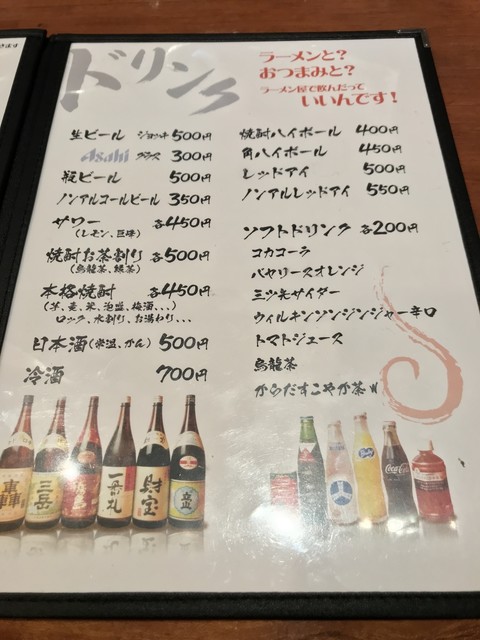 ドリンク
ラーメンと？
おつまみと？
ラーメン屋で飲んだって
いいんです！
生ビール ジョッキ 500円
Asahi グラス 300円
瓶ビール 500円
ノンアルコールビール 350円
サワー 各450円
(レモン、巨峰)
焼酎お茶割り 各500円
(烏龍茶、緑茶)
本格焼酎 各450円
(芋、麦、米、泡盛、梅酒、、、)
ロック、水割り、お湯わり、、、
日本酒(常温、かん) 500円
冷酒 700円
焼酎ハイボール 400円
角ハイボール 450円
レッドアイ 500円
ノンアルレッドアイ 550円
ソフトドリンク 各200円
コカコーラ
バヤリースオレンジ
三ツ矢サイダー
ウィルキンソンジンジャー辛口
トマトジュース
烏龍茶
からだすこやか茶W
轟
三岳
一番札
財宝
立山
Coca-Cola